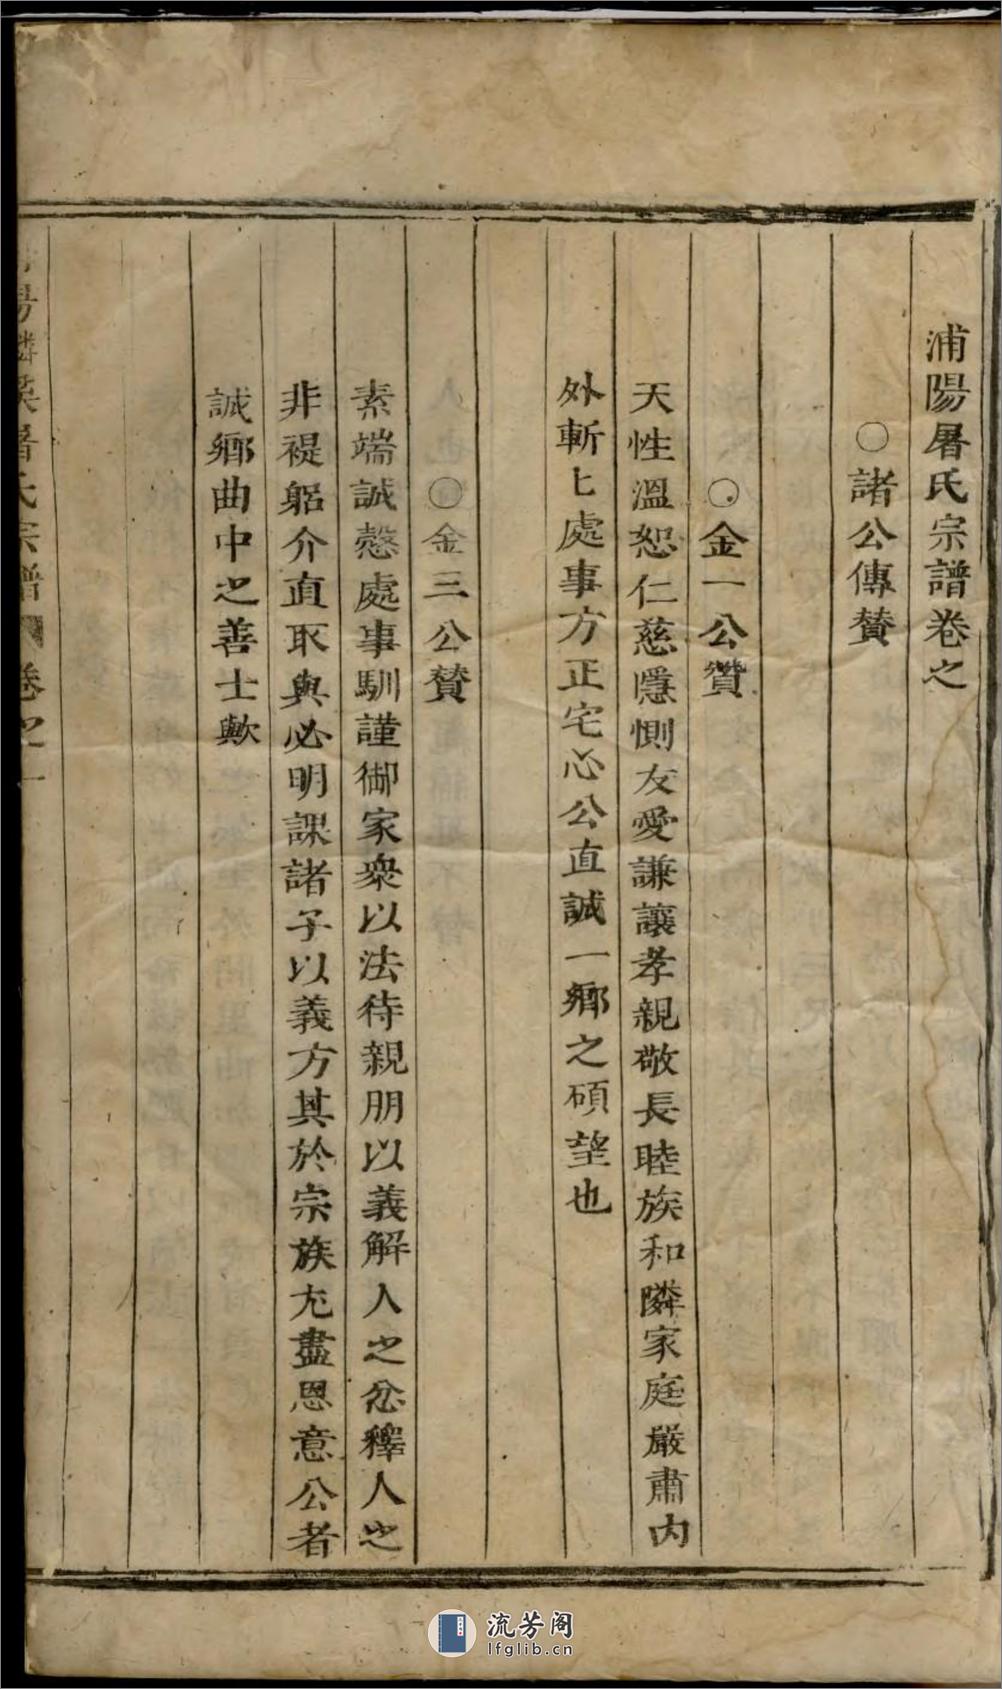 浦陽屠氏宗譜卷之
○諸公傳贊
○金一公贊
天性溫恕仁慈隱惻友愛謙讓孝親敬長睦族和隣家庭嚴肅內
外斬匕處事方正宅心公直誠一鄉之碩望也
○金三公贊
素端誠慤處事馴謹御家衆以法待親朋以義解人之忿釋人之
非禔躬介直取與必明課諸子以義方其於宗族尢盡恩意公者
誠鄉曲中之善士歟
陽 屠氏宗譜 卷之一
流芳阁
lfglib.cn